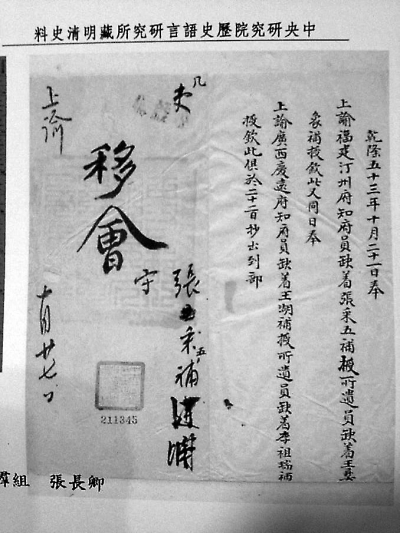 中央研究院歷史語言研究所藏明清史料
乾隆五十三年十月二十一日奉
上諭福建汀州府知府員缺着張采五補授所遺員缺着王
象補授欽此又同日奉
上諭廣西慶遠府知府員缺着王湖補授所遺員缺着李祖瑞補
授欽此俱於二十二日抄出到部
吏
張采五補
守
移會
上諭
十月廿七日
211345
羣組 張長卿